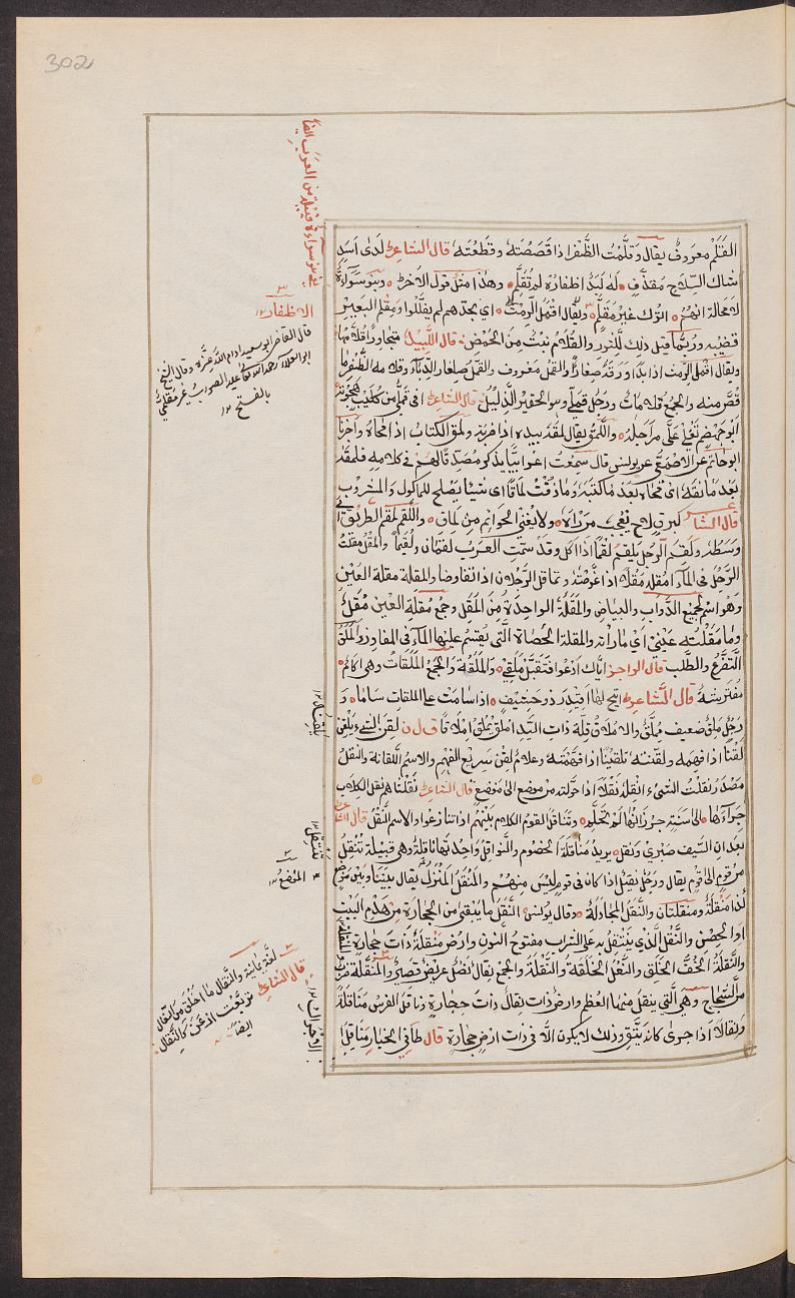 302
القلم معروف يقال وقلمت الظفر اذا قصصته وقطعته قال الشاعر لدى اسد
شاك السلاح مقذف له لبد اظفاره لم تقلم وهذا مثل قول الاخر وبنو سواءة
لا محالة انهم اتوك غير مقلم ويقال اقمل الرمث اي يجدهم لم يقللوا ومقلم البعير
قضيبه وربما قيل ذلك للثور والقلام نبت من الحمض قال اللبيد متجاورا قلامها
ويقال اقمل الرمث اذا بدا ورقه صغارا والقمل معروف والقمل صغار الدباء وقلامه الظفر ما
قص منه والجمع قلامات ورجل قملي وهو الحقير الذليل قال الشاعر افي قملي من كليب هجوته
ابو جهضم تغلي علي مراجله واللمق يقال لمقه بيده اذا ضربه ولمق الكتاب اذا محاه واخبرنا
ابو حاتم عن الاصمعي عن يونس قال سمعت اعرابيا يذكر مصدقا لهم في كلامه فلمقه
بعد ما نمقه اي محاه بعد ما كتبه وما ذقت لماقا اي شيئا يصلح للماكول والمشروب
قال الشاعر كبرق لاح يعجب من رآه ولا يغني الحوائم من لماق واللقم لقم الطريق اي
وسطه ولقم الرجل يلقم لقما اذا اكل وقد سمت العرب لقمان ولقيما والمقل مقلت
الرجل في الماء امقله مقلا اذا غوصته وتماقل الرجلان اذا تغاوصا والمقلة مقلة العين
وهو اسم لجميع السواد والبياض والمقلة الواحدة من المقل وجمع مقلة العين مقل
وما مقلته عيني اي ما راته والمقلة الحصاة التي يقتسم عليها الماء في المفاوز والملق
التضرع والطلب قال الراجز اياك ادعو فتقبل ملقي والملقة والجمع الملقات وهي اكام
مفترشة قال الشاعر اتيح لها اقيدر ذو حشيف اذا سامت على الملقات ساما و
رجل ملق ضعيف مملق والاملاق قلة ذات اليد املق يملق املاقا ق ل ن لقن الشيء يلقن
لقنا اذا فهمه ولقنته تلقينا اذا فهمته وغلام لقن سريع الفهم والاسم اللقانة والنقل
مصدر نقلت الشيء انقله نقلا اذا حولته من موضع الى موضع قال الشاعر نقلناهم نقل الكلاب
جراءها الى سنة جرذانها لم تحلم وتناقل القوم الكلام بينهم اذا تنازعوا والاسم النقل قال الشاعر
بعد ان السيف صبري ونقل يريد مناقلة الخصوم والنواقل واحدتها ناقلة وهي قبيلة تنتقل
من قوم الى قوم يقال ورجل نقيل اذا كان في قوم ليس منهم والمنقل المنزل يقال بيننا وبين موضع
كذا منقلة ومنقلتان والنقل المجادلة وقال يونس النقل ما يبقى من الحجارة من هدم البيت
او الحصن والنقل الذي ينتقل به على الشراب مفتوح النون وارض منقلة ذات حجارة
والنقلة الخف الخلق والنعل الخلقة والنقلة والجمع نقال نصل عريض قصير والمنقلة ضرب
من الشجاج وهي التي ينقل منها العظم وارض ذات نقال ذات حجارة وناقل الفرس مناقلة
ونقالا اذا جرى كانه يتقي وذلك لا يكون الا في ذات ارض حجارة قال طافي الخبار مناقل
بنو سواءة قبيلة من العرب ايضا
الاظفار
قال القاضي ابو سعيد ادام الله عزه وقال الشيخ
ابو العلاء رحمه الله تعالى عليه الصواب غير مقلمي
بالفتح
تنتقل
الموضع
لغة يمانية والنقال ما اخلق من النعال
قال الشاعر
ايضا